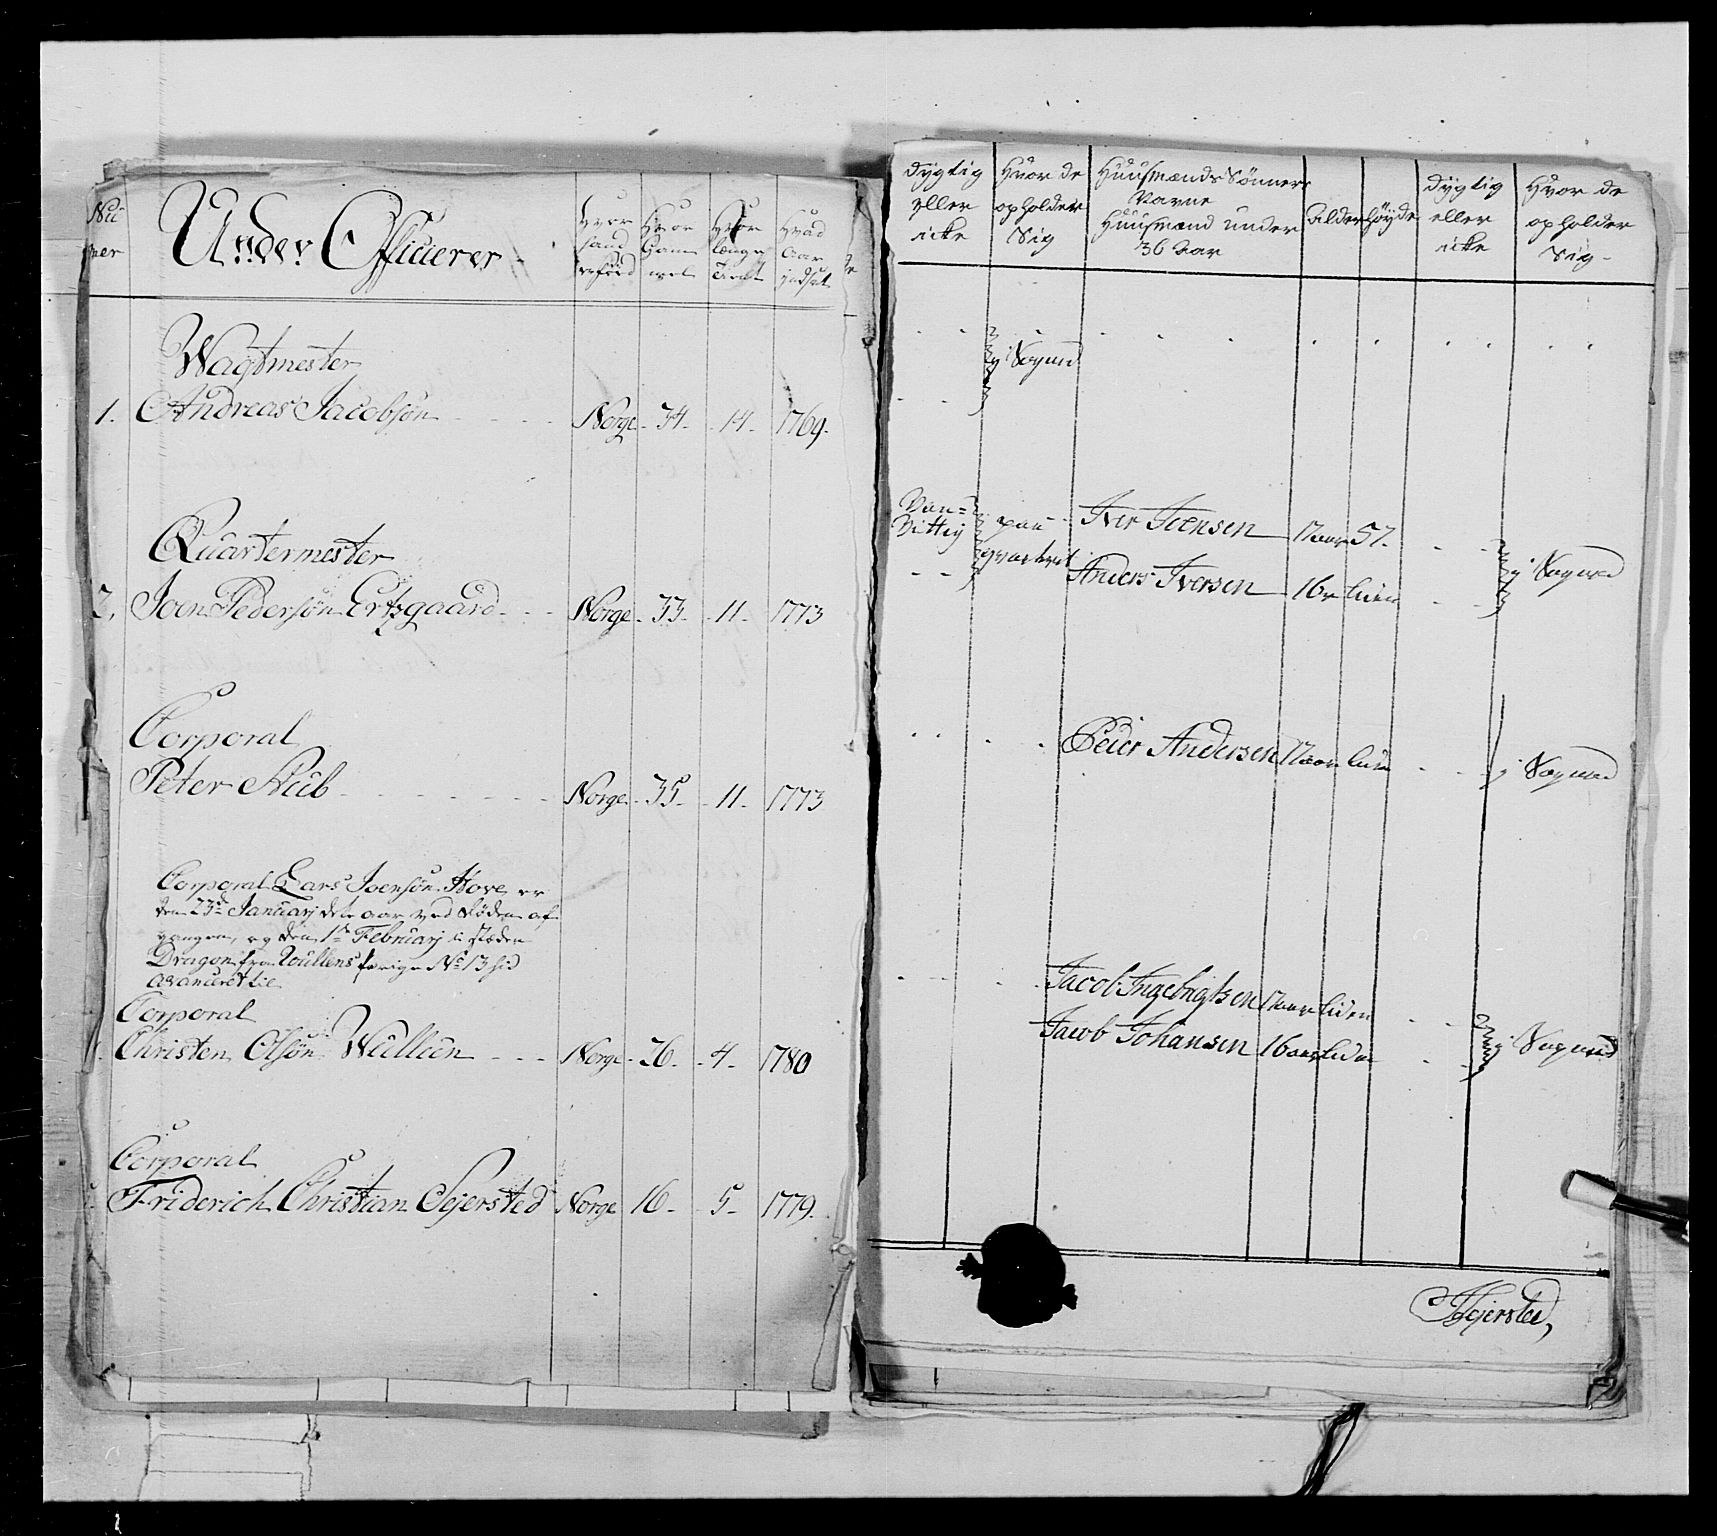 Under Officierer
Nu
mer
Hvor
fand
er föed
Hvor
Gam
mel
Hvor
længe
tient
Hvad
Aar
indsat
Wagtmester
1. Andreas Jacobsön Norge 34 14 1769
Quartermester
2. Joen Pedersön Ertzgaard Norge 33 11 1773
Corporal
Peter Stub Norge 35 11 1773
Corporal Lars Joensön Hove er
den 23de Januarj dete aar ved Döden af
gangen, og den 1te Februarj i stæden
Dragon fra Wullens forige No 13 hid
avanceret til
Corporal
Christen Olsön Wullum Norge 26 4 1780
Corporal
Friderich Christian Sejersted Norge 16 5 1779
dygtig
eller
icke
Hvor de
opholder
Sig
Huusmænds Sønners
Navne
Huusmænd under
36 Aar
Alder
høyde
dygtig
eller
icke
Hvor de
opholder
Sig
i Sogned
Van=
Vittig
paa
qvarteret
Iver Joensen 17 aar 57
Anders Iversen 16 liden
i Sogned
Peder Andersen 17 aar liden i Sogned
Jacob Ingebrigtsen 17 aar liden
Jacob Johansen 16 aar liden
i Sogned
Sejersted